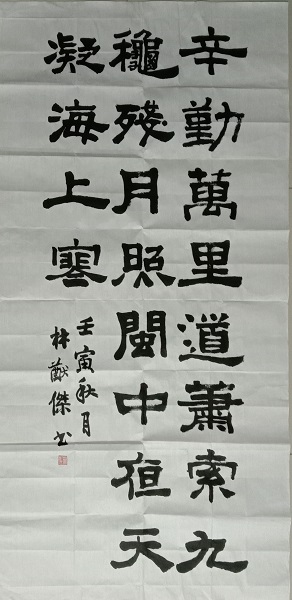 辛勤萬里道蕭索九
龝殘月照閩中夜天
凝海上寒
壬寅秋月
林猷傑书